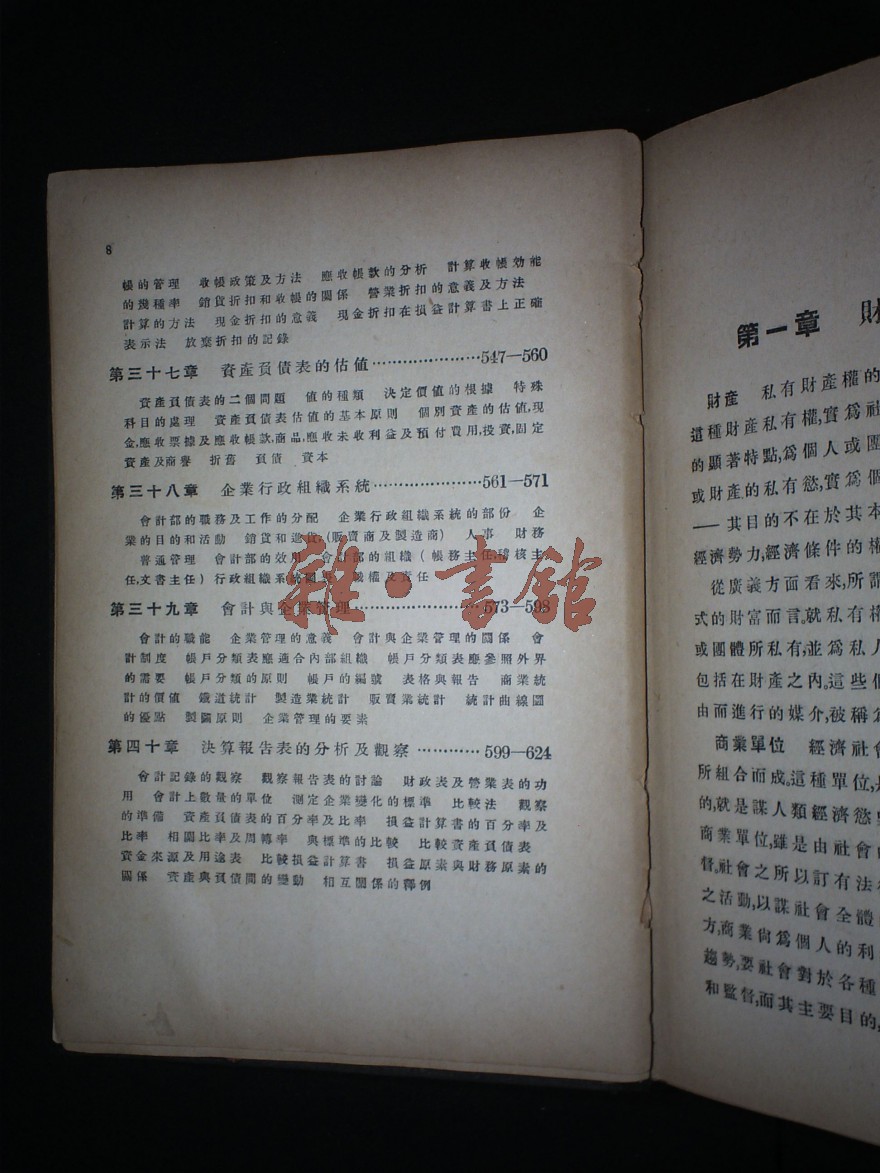 8
帳的管理　收帳政策及方法　應收帳款的分析　計算收帳効能
的幾種率　銷貨折扣和收帳的關係　營業折扣的意義及方法
計算的方法　現金折扣的意義　現金折扣在損益計算書上正確
表示法　放棄折扣的記錄
第三十七章　資產負債表的估値…………………547—560
資產負債表的二個問題　値的種類　決定價値的根據　特殊
科目的處理　資產負債表估値的基本原則　個別資產的估値,現
金,應收票據及應收帳款,商品,應收未收利益及預付費用,投資,固定
資產及商譽　折舊　負債　資本
第三十八章　企業行政組織系統…………………561—571
會計部的職務及工作的分配　企業行政組織系統的部份　企
業的目的和活動　銷貨和進貨,(販賣商及製造商)　人事　財務
普通管理　會計部的效用　會計部的組織(帳務主任,稽核主
任,文書主任)行政組織系統圖　職權及責任
第三十九章　會計與企業管理…………………573—598
會計的職能　企業管理的意義　會計與企業管理的關係　會
計制度　帳戶分類表應適合內部組織　帳戶分類表應參照外界
的需要　帳戶分類的原則　帳戶的編號　表格與報告　商業統
計的價値　鐵道統計　製造業統計　販賣業統計　統計曲線圖
的優點　製圖原則　企業管理的要素
第四十章　決算報告表的分析及觀察…………599—624
會計記錄的觀察　觀察報告表的討論　財政表及營業表的功
用　會計上數量的單位　測定企業變化的標準　比較法　觀察
的準備　資產負債表的百分率及比率　損益計算書的百分率及
比率　相關比率及周轉率　與標準的比較　比較資產負債表
資金來源及用途表　比較損益計算書　損益原素與財務原素的
關係　資產與負債間的變動　相互關係的釋例
雜·書館
第一章　財
財產　私有財產權的
這種財產私有權,實爲社
的顯著特點,爲個人或團
或財產的私有慾,實爲個
——其目的不在於其本
經濟勢力,經濟條件的權
從廣義方面看來,所謂
式的財富而言,就私有權
或團體所私有,並爲私人
包括在財產之內。這些個
由而進行的媒介,被稱爲
商業單位　經濟社會
所組合而成。這種單位,是
的,就是謀人類經濟慾
商業單位,雖是由社會
督。社會之所以訂有法
之活動,以謀社會全體
方,商業尙爲個人的利
趨勢,要社會對於各種
和監督,而其主要目的,